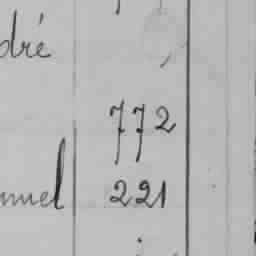 dré
772
nuel 221